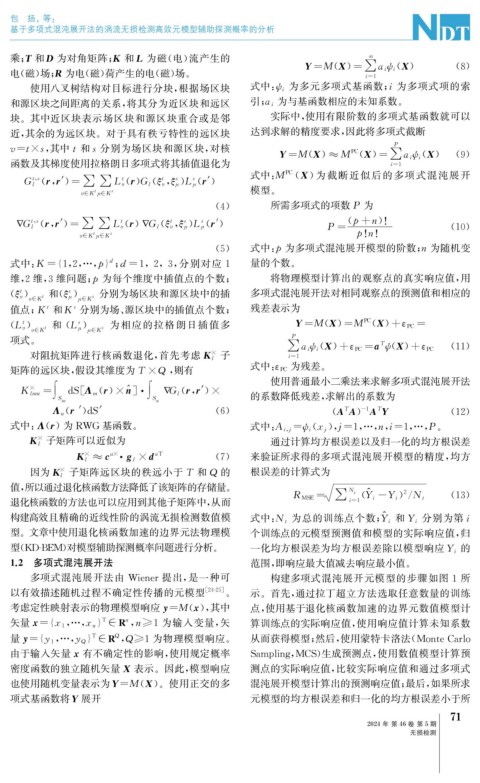 包　扬，等：
基于多项式混沌展开法的涡流无损检测高效元模型辅助探测概率的分析
NDT
乘；T 和 D 为对角矩阵；K 和 L 为磁(电)流产生的
电(磁)场；R 为电(磁)荷产生的电(磁)场。
使用八叉树结构对目标进行分块，根据场区块
和源区块之间距离的关系，将其分为近区块和远区
块。其中近区块表示场区块和源区块重合或是邻
近，其余的为远区块。对于具有秩亏特性的远区块
v=t×s，其中 t 和 s 分别为场区块和源区块，对核
函数及其梯度使用拉格朗日多项式将其插值退化为
(4)
(5)
式中：K={1,2,…,p}^d；d=1，2，3，分别对应 1
维，2 维，3 维问题；p 为每个维度中插值点的个数；
和 分别为场区块和源区块中的插
值点；K^t 和 K^s 分别为场、源区块中的插值点个数；
和 为相应的拉格朗日插值多
项式。
对阻抗矩阵进行核函数退化，首先考虑 子
矩阵的远区块，假设其维度为 T×Q ，则有
(6)
式中：Λ(r) 为 RWG 基函数。
子矩阵可以近似为
(7)
因为 子矩阵远区块的秩远小于 T 和 Q 的
值，所以通过退化核函数方法降低了该矩阵的存储量。
退化核函数的方法也可以应用到其他子矩阵中，从而
构建高效且精确的近线性阶的涡流无损检测数值模
型。文章中使用退化核函数加速的边界元法物理模
型(KD-BEM)对模型辅助探测概率问题进行分析。
1.2　多项式混沌展开法
多项式混沌展开法由 Wiener 提出，是一种可
以有效描述随机过程不确定性传播的元模型[21-23]。
考虑定性映射表示的物理模型响应 y=M(x)，其中
矢量 x={x₁,…,xₙ}^T∈R^n，n≥1 为输入变量，矢
量 y={y₁,…,y_Q}^T∈R^Q，Q≥1 为物理模型响应。
由于输入矢量 x 有不确定性的影响，使用规定概率
密度函数的独立随机矢量 X 表示。因此，模型响应
也使用随机变量表示为 Y=M(X)。使用正交的多
项式基函数将 Y 展开
Y=M(X)=∑_{i=1}^{∞} a_i ψ_i(X)　(8)
式中：ψ_i 为多元多项式基函数；i 为多项式项的索
引；a_i 为与基函数相应的未知系数。
实际中，使用有限阶数的多项式基函数就可以
达到求解的精度要求，因此将多项式截断
Y=M(X)≈M^PC(X)=∑_{i=1}^{P} a_i ψ_i(X)　(9)
式中：M^PC(X) 为截断近似后的多项式混沌展开
模型。
所需多项式的项数 P 为
P=(p+n)!/(p!n!)　(10)
式中：p 为多项式混沌展开模型的阶数；n 为随机变
量的个数。
将物理模型计算出的观察点的真实响应值，用
多项式混沌展开法对相同观察点的预测值和相应的
残差表示为
Y=M(X)=M^PC(X)+ε_PC=
∑_{i=1}^{P} a_i ψ_i(X)+ε_PC=a^T ψ(X)+ε_PC　(11)
式中：ε_PC 为残差。
使用普通最小二乘法来求解多项式混沌展开法
的系数降低残差，求解出的系数为
(A^T A)^-1 A^T Y　(12)
式中：A_{i,j}=ψ_i(x_j)，j=1,…,n，i=1,…,P。
通过计算均方根误差以及归一化的均方根误差
来验证所求得的多项式混沌展开模型的精度，均方
根误差的计算式为
R_MSE=√(∑_{i=1}^{N_t}(Ŷ_i−Y_i)²/N_t)　(13)
式中：N_t 为总的训练点个数；Ŷ_i 和 Y_i 分别为第 i
个训练点的元模型预测值和模型的实际响应值，归
一化均方根误差为均方根误差除以模型响应 Y_i 的
范围，即响应最大值减去响应最小值。
构建多项式混沌展开元模型的步骤如图 1 所
示。首先，通过拉丁超立方法选取任意数量的训练
点，使用基于退化核函数加速的边界元数值模型计
算训练点的实际响应值，使用响应值计算未知系数
从而获得模型；然后，使用蒙特卡洛法(Monte Carlo
Sampling,MCS)生成预测点，使用数值模型计算预
测点的实际响应值，比较实际响应值和通过多项式
混沌展开模型计算出的预测响应值；最后，如果所求
元模型的均方根误差和归一化的均方根误差小于所
71
2024 年 第 46 卷 第 5 期
无损检测